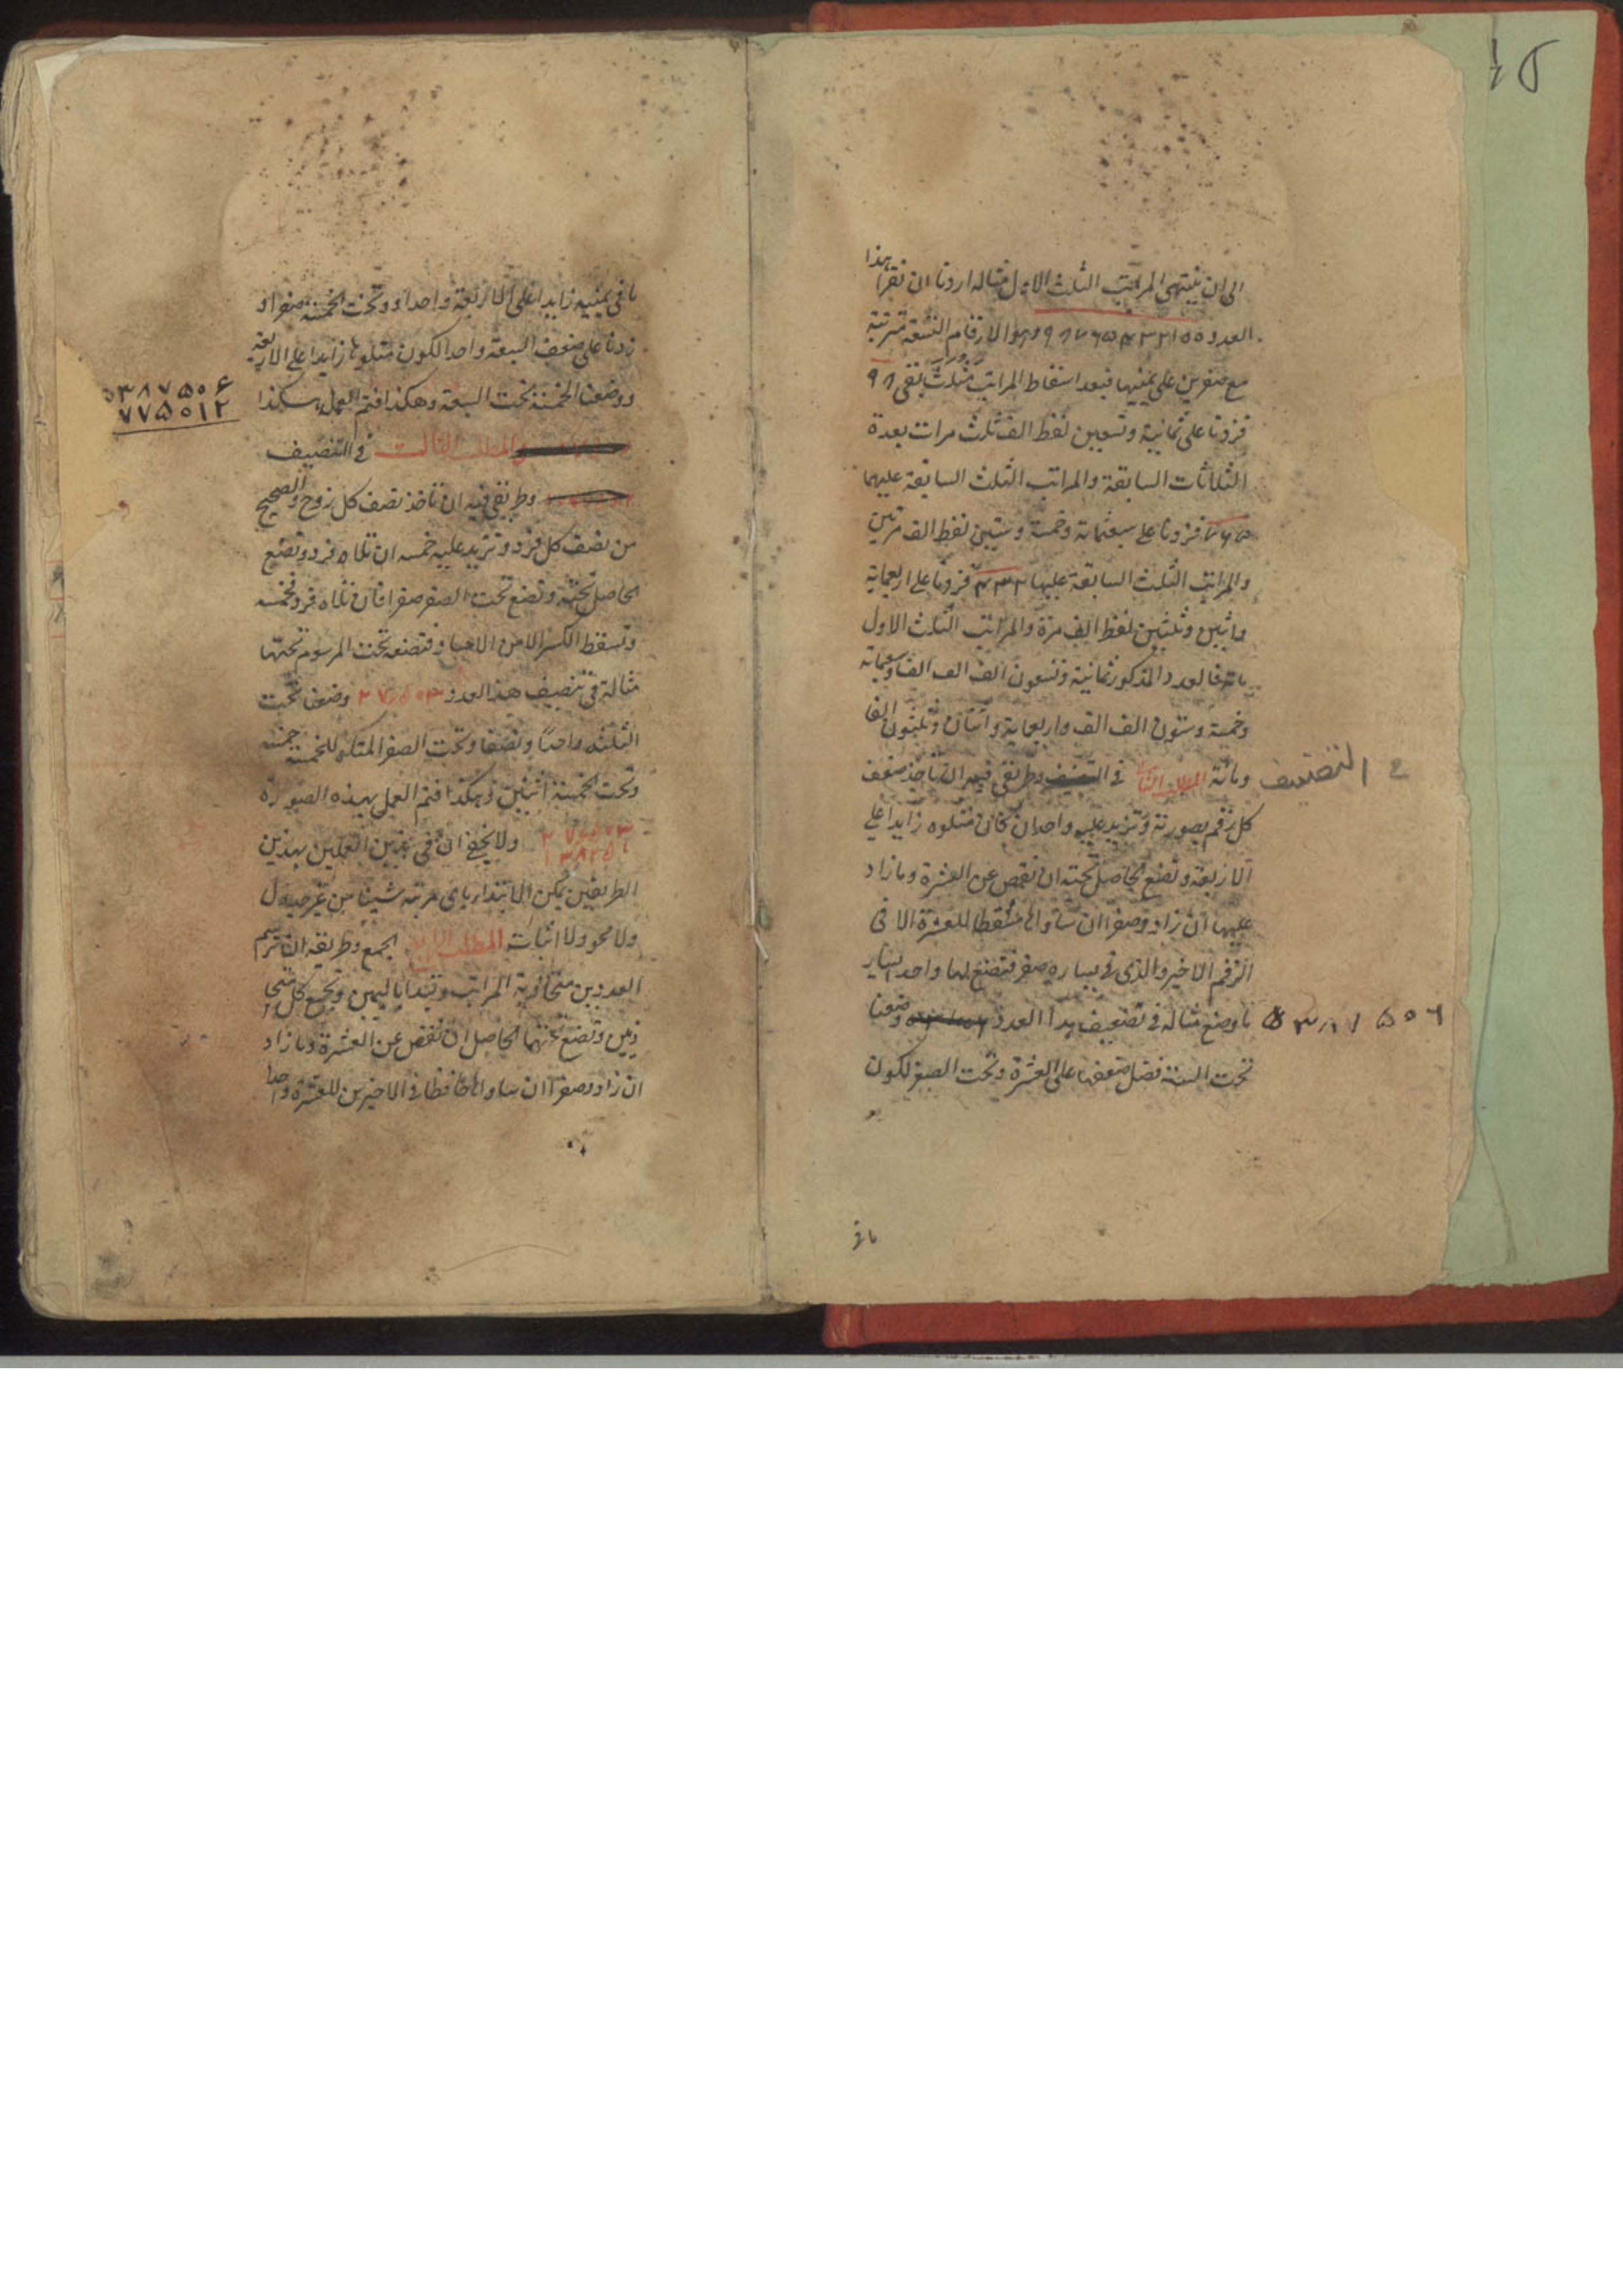 الى ان ينتهى المراتب الثلث الاول مثاله اردنا ان نقرأ هذا
العدد ٩٨٧٦٥٤٣٢١٥٥ والارقام التسعة مترتبة
مع صفرين على يمينها فبعد اسقاط المراتب مثلث بقى ٩٨
فزدنا على ثمانية وتسعين لفظ الف ثلث مرات بعدة
الثلاثات السابقة والمراتب الثلث السابقة عليهما
٧٦٥ فزدنا على سبعمائة وخمسة وستين لفظ الف مرتين
والمراتب الثلث السابقة عليها ٤٣٢ فزدنا على اربعماية
واثنين وثلثين لفظ الف مرة والمراتب الثلث الاول
ماته فالعدد المذكور ثمانية وتسعون الف الف الف وسبعمائة
وخمسة وستون الف الف واربعماية واثنان وثلثون الفا
ومائة المطلب الثانى فى وطريقى فيه ان تاخذ ضعف
فى التضعيف
كل رقم بصورته وتزيد عليه واحدا ان كان متلوه زايدا على
الاربعة وتضع الحاصل تحته ان نقص عن العشرة وما زاد
عليها ان زاد وصفرا ان ساواها مسقطا للعشرة الا فى
الرقم الاخير والذى فى يساره صفر فتضع لها واحدا يسار
ما وضع مثاله فى تضعيف هذا العدد وضعنا
٥٣٨٧٥٠٦
تحت الستة فضل ضعفها على العشرة وتحت الصفر لكون
مافى
ما فى يمينه زايدا على الاربعة واحدا وتحت الخمسة صفرا و
زدنا على ضعف السبعة واحدا لكون متلوها زايدا على الاربعة
ووضعنا الخمسة تحت السبعة وهكذا فتم العمل هكذا
٥٣٨٧٥٠۶
٧٧٥٠١٢
المطلب الثالث فى التنصيف
وطريقى فيه ان تاخذ نصف كل زوج والصحيح
من نصف كل فرد وتزيد عليه خمسه ان تلاه فرد وتضع
الحاصل تحته وتضع تحت الصفر صفرا فان تلاه فرد فخمسه
وتسقط الكسر الا من الاخير فتضعه تحت المرسوم تحتها
مثاله فى تنصيف هذا العدد ٢٧٦٥٠٣ وضعنا تحت
الثلثه واحدا ونصفا وتحت الصفر المتلو للخمسة خمسة
وتحت الخمسة اثنين وهكذا فتم العمل بهذه الصورة
٢٧٦٥٠٣ ولا يخفى ان فى هذين العملين بهذين
الطريقين يمكن الابتداء باى مرتبه شينا من غير جدول
ولا محو ولا اثبات المطلب الرابع الجمع وطريقه ان ترسم
العددين متحاذية المراتب وتبدا باليمين وتجمع كل متحا
ذيين وتضع تحتهما الحاصل ان نقص عن العشرة وما زاد
ان زاد وصفرا ان ساواها حافظا فى الاخيرين للعشرة واحدا